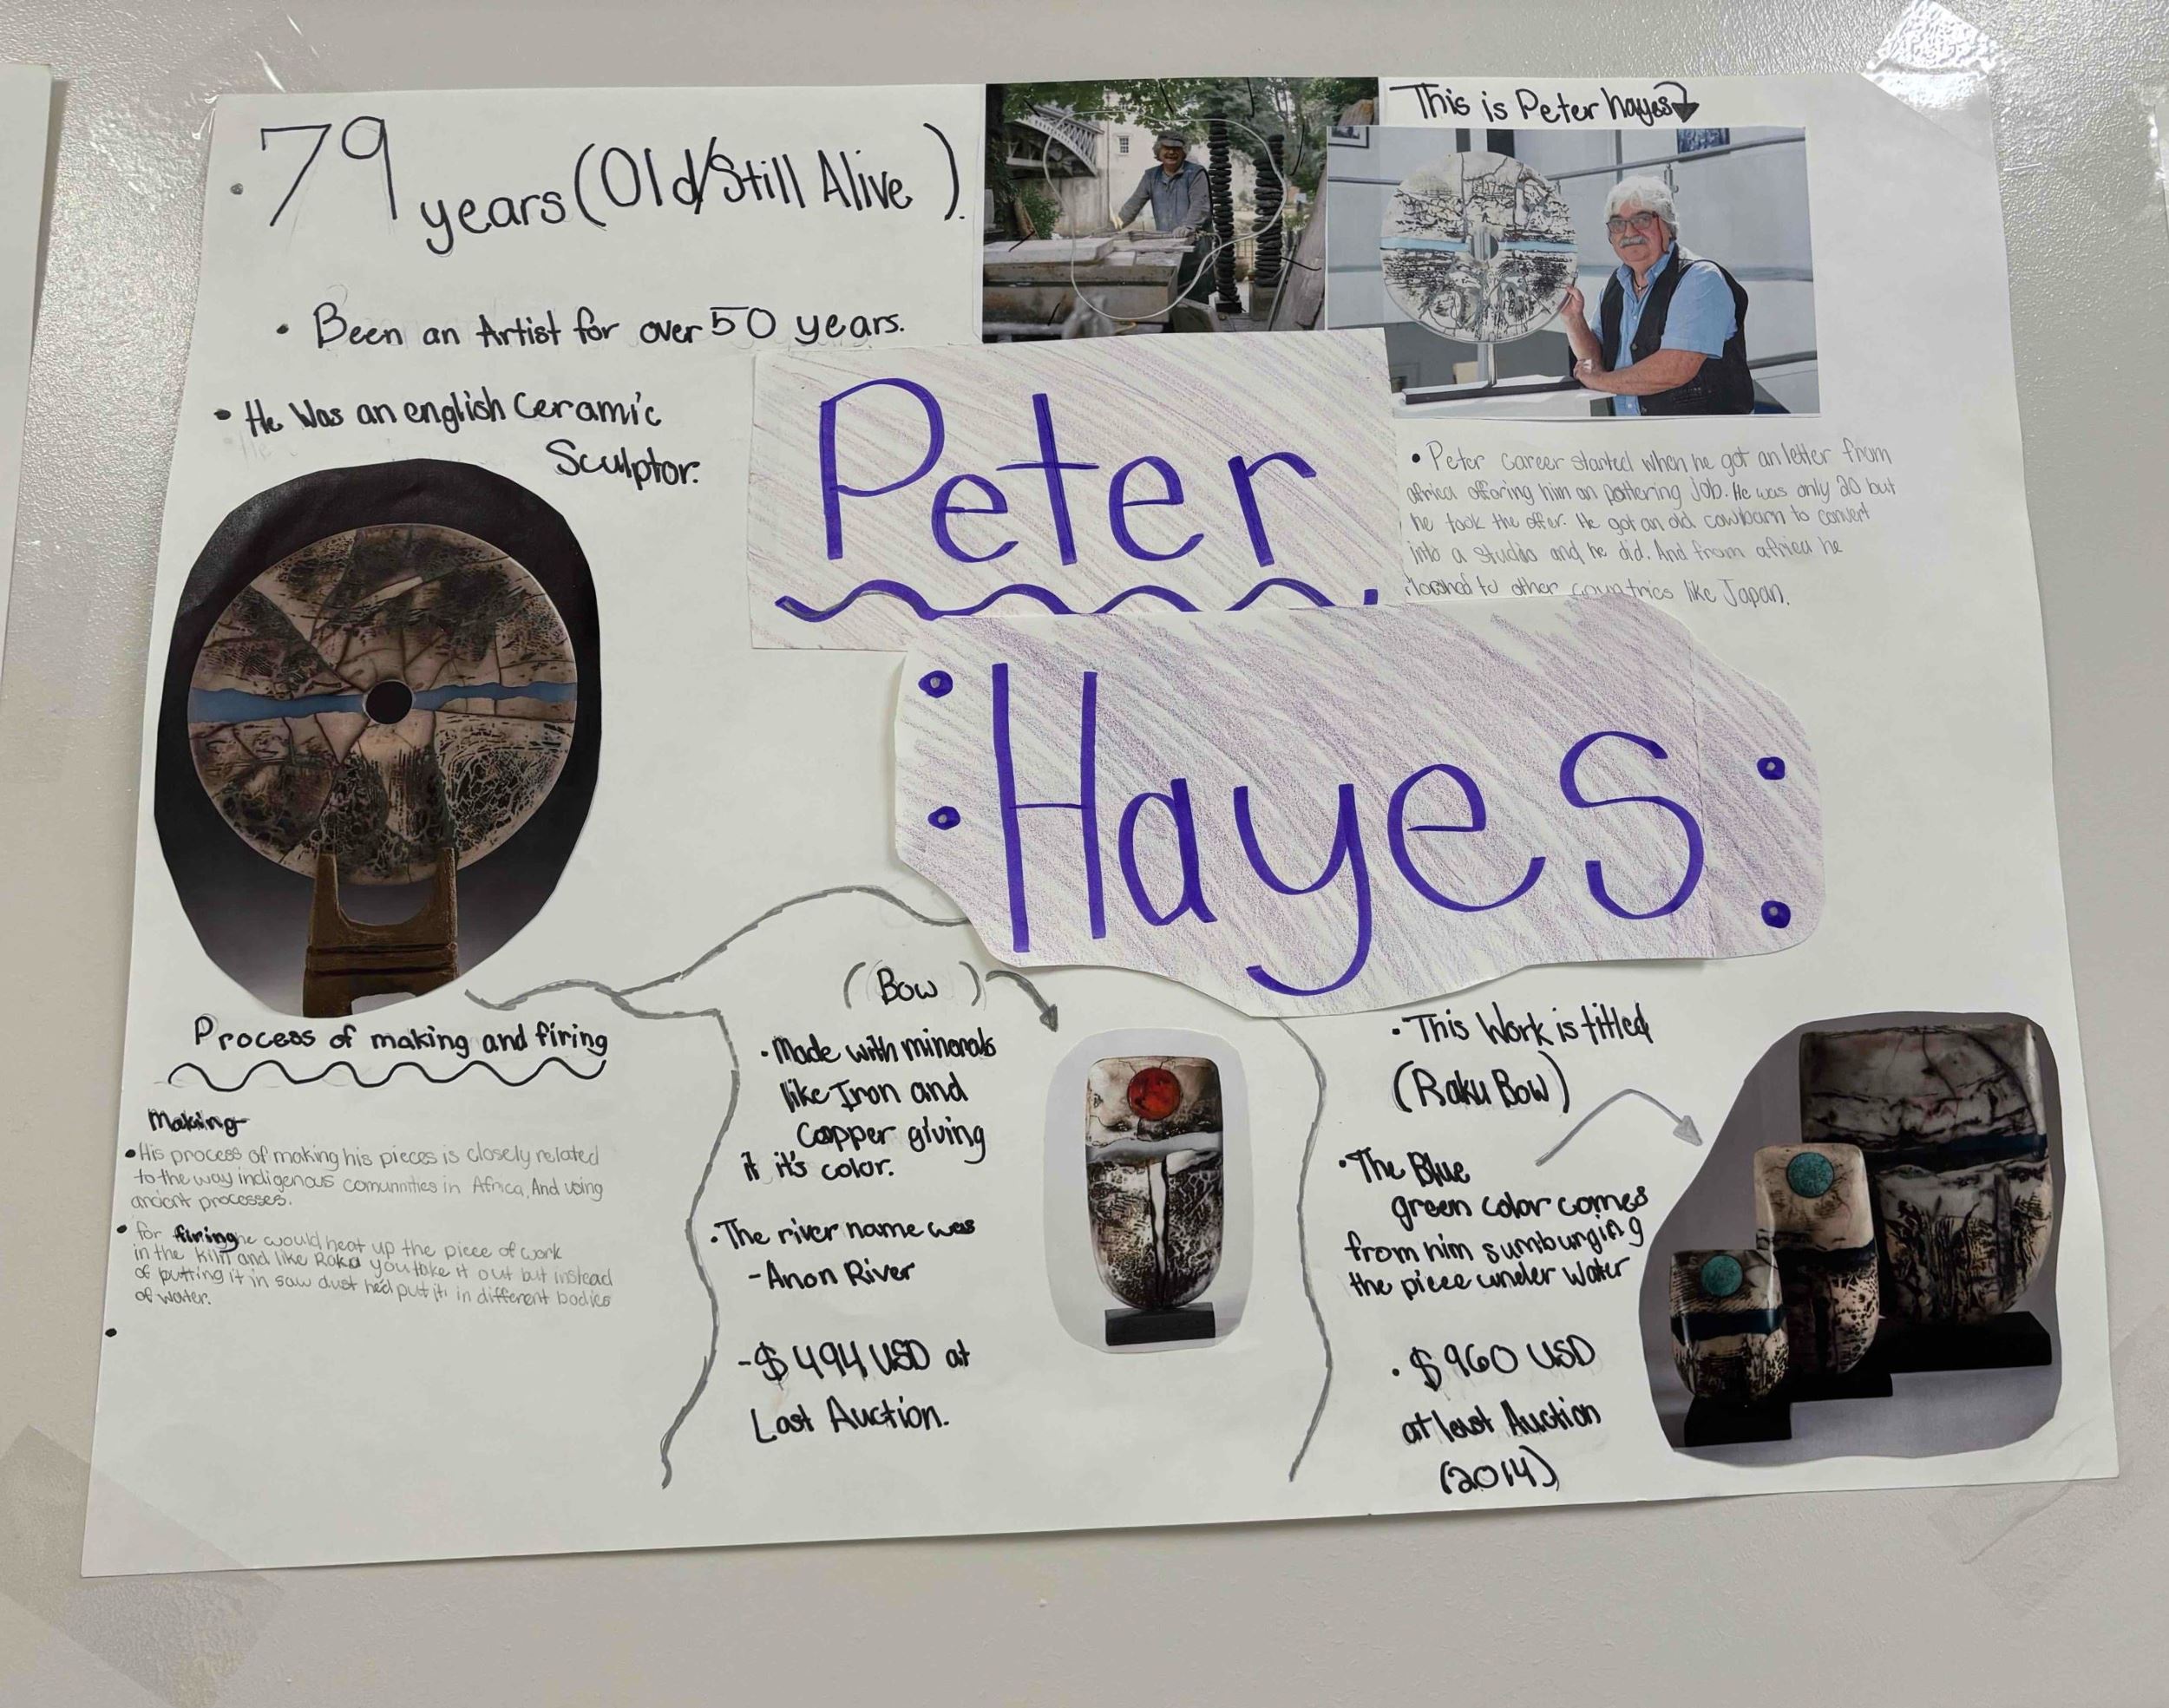 79 years (Old/Still Alive).
• Been an Artist for over 50 years.
• He Was an english Ceramic
Sculptor.
This is Peter hayes
Peter
Hayes
• Peter career started when he got an letter from
africa offering him an pottering Job. He was only 20 but
he took the offer. He got an old cowbarn to convert
into a studio and he did. And from africa he
to other countries like Japan.
Process of making and firing
Making
• His process of making his pieces is closely related
to the way indigenous comunnities in Africa, And using
ancient processes.
• for firing he would heat up the piece of work
in the kiln and like Raku you take it out but instead
of putting it in saw dust he'd put it in different bodies
of water.
(Bow)
• Made with minerals
like Iron and
Copper giving
it it's color.
• The river name was
- Anon River
- $494 USD at
Last Auction.
• This Work is titled
(Raku Bow)
• The Blue
green color comes
from him sumburging
the piece under Water
• $960 USD
at last Auction
(2014)